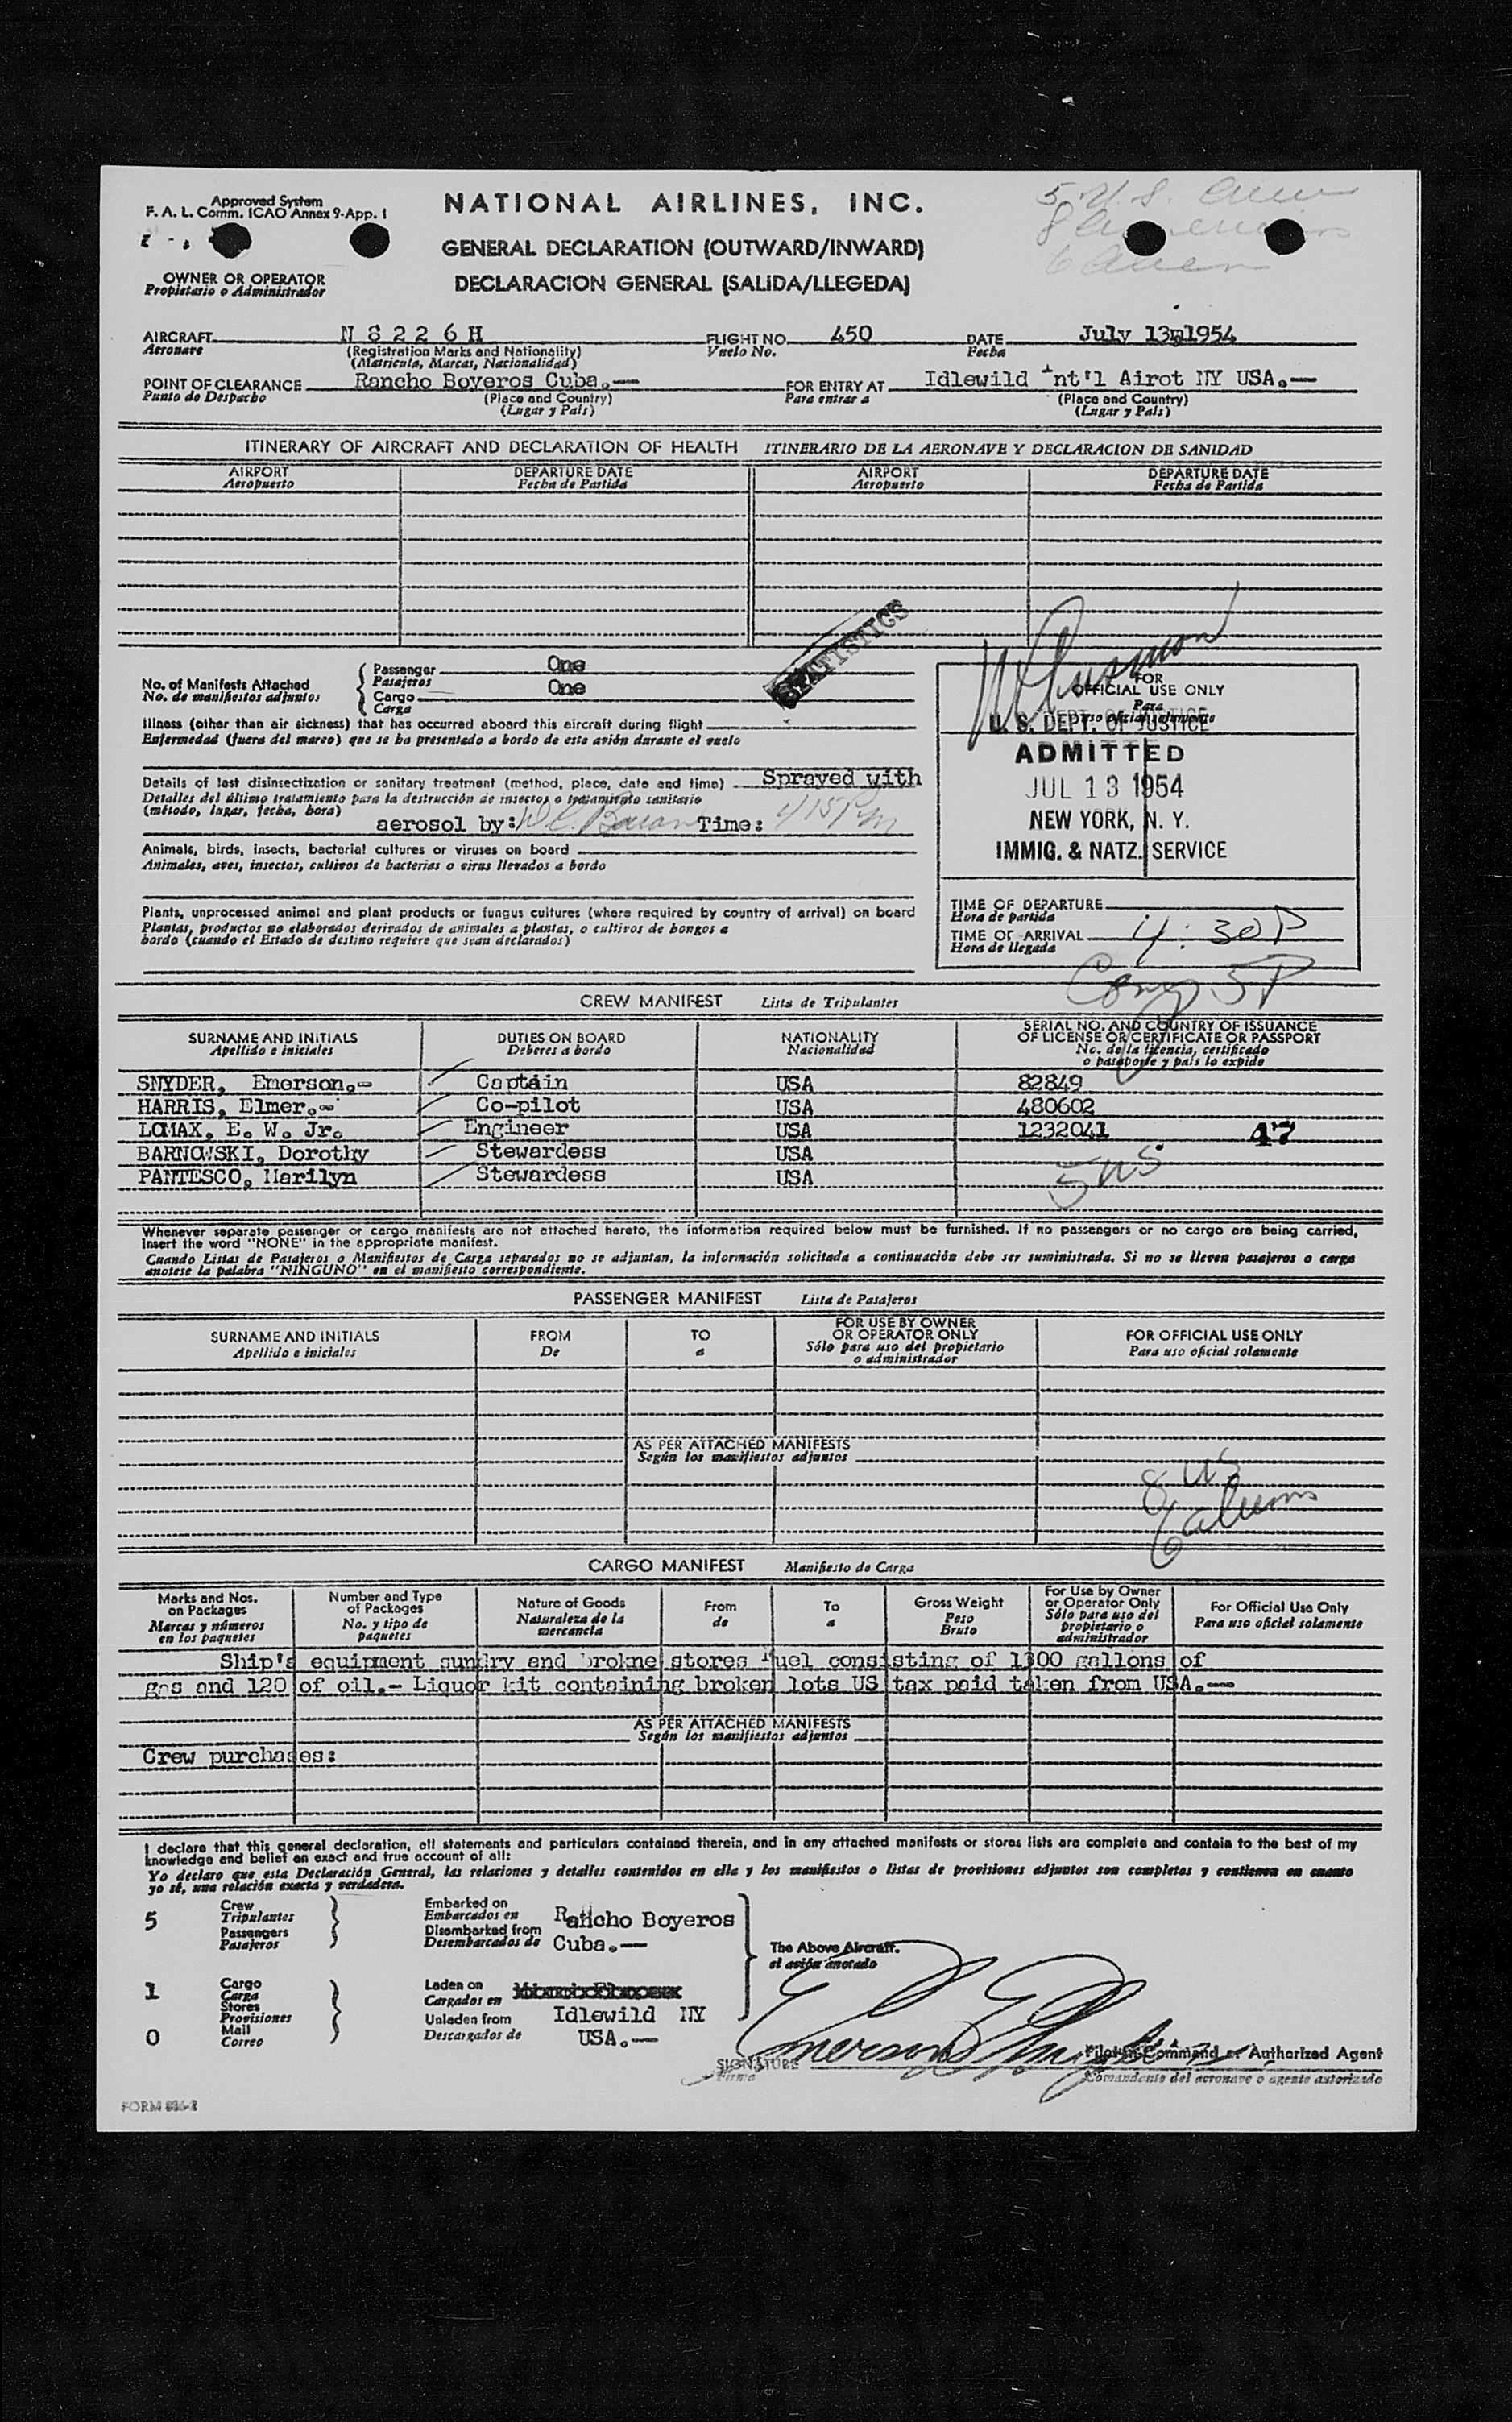 Approved System
F. A. L. Comm. ICAO Annex 9-App. 1
NATIONAL AIRLINES, INC.
5 U.S. Crew
GENERAL DECLARATION (OUTWARD/INWARD)
8
6 Alien
OWNER OR OPERATOR
Propietario o Administrador
DECLARACION GENERAL (SALIDA/LLEGEDA)
AIRCRAFT N 8 2 2 6 H FLIGHT NO. 450 DATE July 13 1954
Aeronave (Registration Marks and Nationality) Vuelo No. Fecha
(Matricula, Marcas, Nacionalidad)
POINT OF CLEARANCE Rancho Boyeros Cuba.— FOR ENTRY AT Idlewild Int'l Airot NY USA.—
Punto de Despacho (Place and Country) Para entrar a (Place and Country)
(Lugar y País) (Lugar y País)
ITINERARY OF AIRCRAFT AND DECLARATION OF HEALTH ITINERARIO DE LA AERONAVE Y DECLARACION DE SANIDAD
AIRPORT DEPARTURE DATE AIRPORT DEPARTURE DATE
Aeropuerto Fecha de Partida Aeropuerto Fecha de Partida
STATISTICS
No. of Manifests Attached Passenger One
No. de manifiestos adjuntos Pasajeros
Cargo One
Carga
Illness (other than air sickness) that has occurred aboard this aircraft during flight
Enfermedad (fuera del mareo) que se ha presentado a bordo de este avión durante el vuelo
Details of last disinsectization or sanitary treatment (method, place, date and time) Sprayed with
Detalles del último tratamiento para la destrucción de insectos o tratamiento sanitario
(método, lugar, fecha, hora)
aerosol by: Time: 415 Pm
Animals, birds, insects, bacterial cultures or viruses on board
Animales, aves, insectos, cultivos de bacterias o virus llevados a bordo
Plants, unprocessed animal and plant products or fungus cultures (where required by country of arrival) on board
Plantas, productos no elaborados derivados de animales a plantas, o cultivos de hongos a
bordo (cuando el Estado de destino requiere que sean declarados)
FOR
OFFICIAL USE ONLY
Para
uso oficial solamente
U. S. DEPT. OF JUSTICE
ADMITTED
JUL 13 1954
NEW YORK, N. Y.
IMMIG. & NATZ. SERVICE
TIME OF DEPARTURE
Hora de partida
TIME OF ARRIVAL 4:30P
Hora de llegada
5P
CREW MANIFEST Lista de Tripulantes
SURNAME AND INITIALS DUTIES ON BOARD NATIONALITY SERIAL NO. AND COUNTRY OF ISSUANCE
Apellido e iniciales Deberes a bordo Nacionalidad OF LICENSE OR CERTIFICATE OR PASSPORT
No. de la licencia, certificado
o pasaporte y país lo expide
SNYDER, Emerson.- Captain USA 82849
HARRIS, Elmer.- Co-pilot USA 480602
LOMAX, E. W. Jr. Engineer USA 1232041 47
BARNOWSKI, Dorothy Stewardess USA
PANTESCO, Marilyn Stewardess USA
5 US
Whenever separate passenger or cargo manifests are not attached hereto, the information required below must be furnished. If no passengers or no cargo are being carried,
insert the word "NONE" in the appropriate manifest.
Cuando Listas de Pasajeros o Manifiestos de Carga separados no se adjuntan, la información solicitada a continuación debe ser suministrada. Si no se lleven pasajeros o carga
anotese la palabra "NINGUNO" en el manifiesto correspondiente.
PASSENGER MANIFEST Lista de Pasajeros
SURNAME AND INITIALS FROM TO FOR USE BY OWNER FOR OFFICIAL USE ONLY
Apellido e iniciales De a OR OPERATOR ONLY Para uso oficial solamente
Sólo para uso del propietario
o administrador
AS PER ATTACHED MANIFESTS
Según los manifiestos adjuntos
8 US
6 aliens
CARGO MANIFEST Manifiesto de Carga
Marks and Nos. on Packages Number and Type of Packages Nature of Goods From To Gross Weight For Use by Owner or Operator Only For Official Use Only
Marcas y números en los paquetes No. y tipo de paquetes Naturaleza de la mercancía de a Peso Bruto Sólo para uso del propietario o administrador Para uso oficial solamente
Ship's equipment sundry and brokne stores Fuel consisting of 1300 gallons of
gas and 120 of oil.- Liquor kit containing broken lots US tax paid taken from USA.—
AS PER ATTACHED MANIFESTS
Según los manifiestos adjuntos
Crew purchases:
I declare that this general declaration, all statements and particulars contained therein, and in any attached manifests or stores lists are complete and contain to the best of my
knowledge and belief an exact and true account of all:
Yo declaro que esta Declaración General, las relaciones y detalles contenidos en ella y los manifiestos o listas de provisiones adjuntos son completos y contienen en cuanto
yo sé, una relación exacta y verdadera.
5 Crew Tripulantes Embarked on Embarcados en Rancho Boyeros
Passengers Pasajeros Disembarked from Desembarcados de Cuba.—
The Above Aircraft.
el avión anotado
1 Cargo Carga Laden on Cargados en
Stores Provisiones Unladen from Idlewild NY
0 Mail Correo Descargados de USA.—
SIGNATURE Emerson Snyder Pilot in Command or Authorized Agent
Firma Comandante del aeronave o agente autorizado
FORM